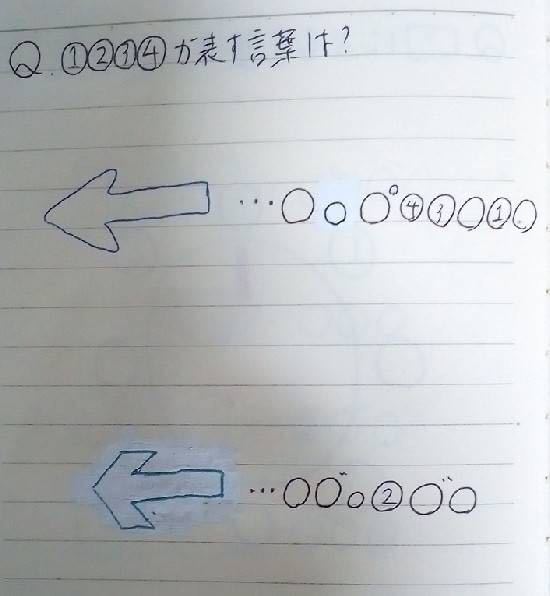 Q. ①②③④が表す言葉は?
…○○○゜④③○①○
…○○゛○②○゛○